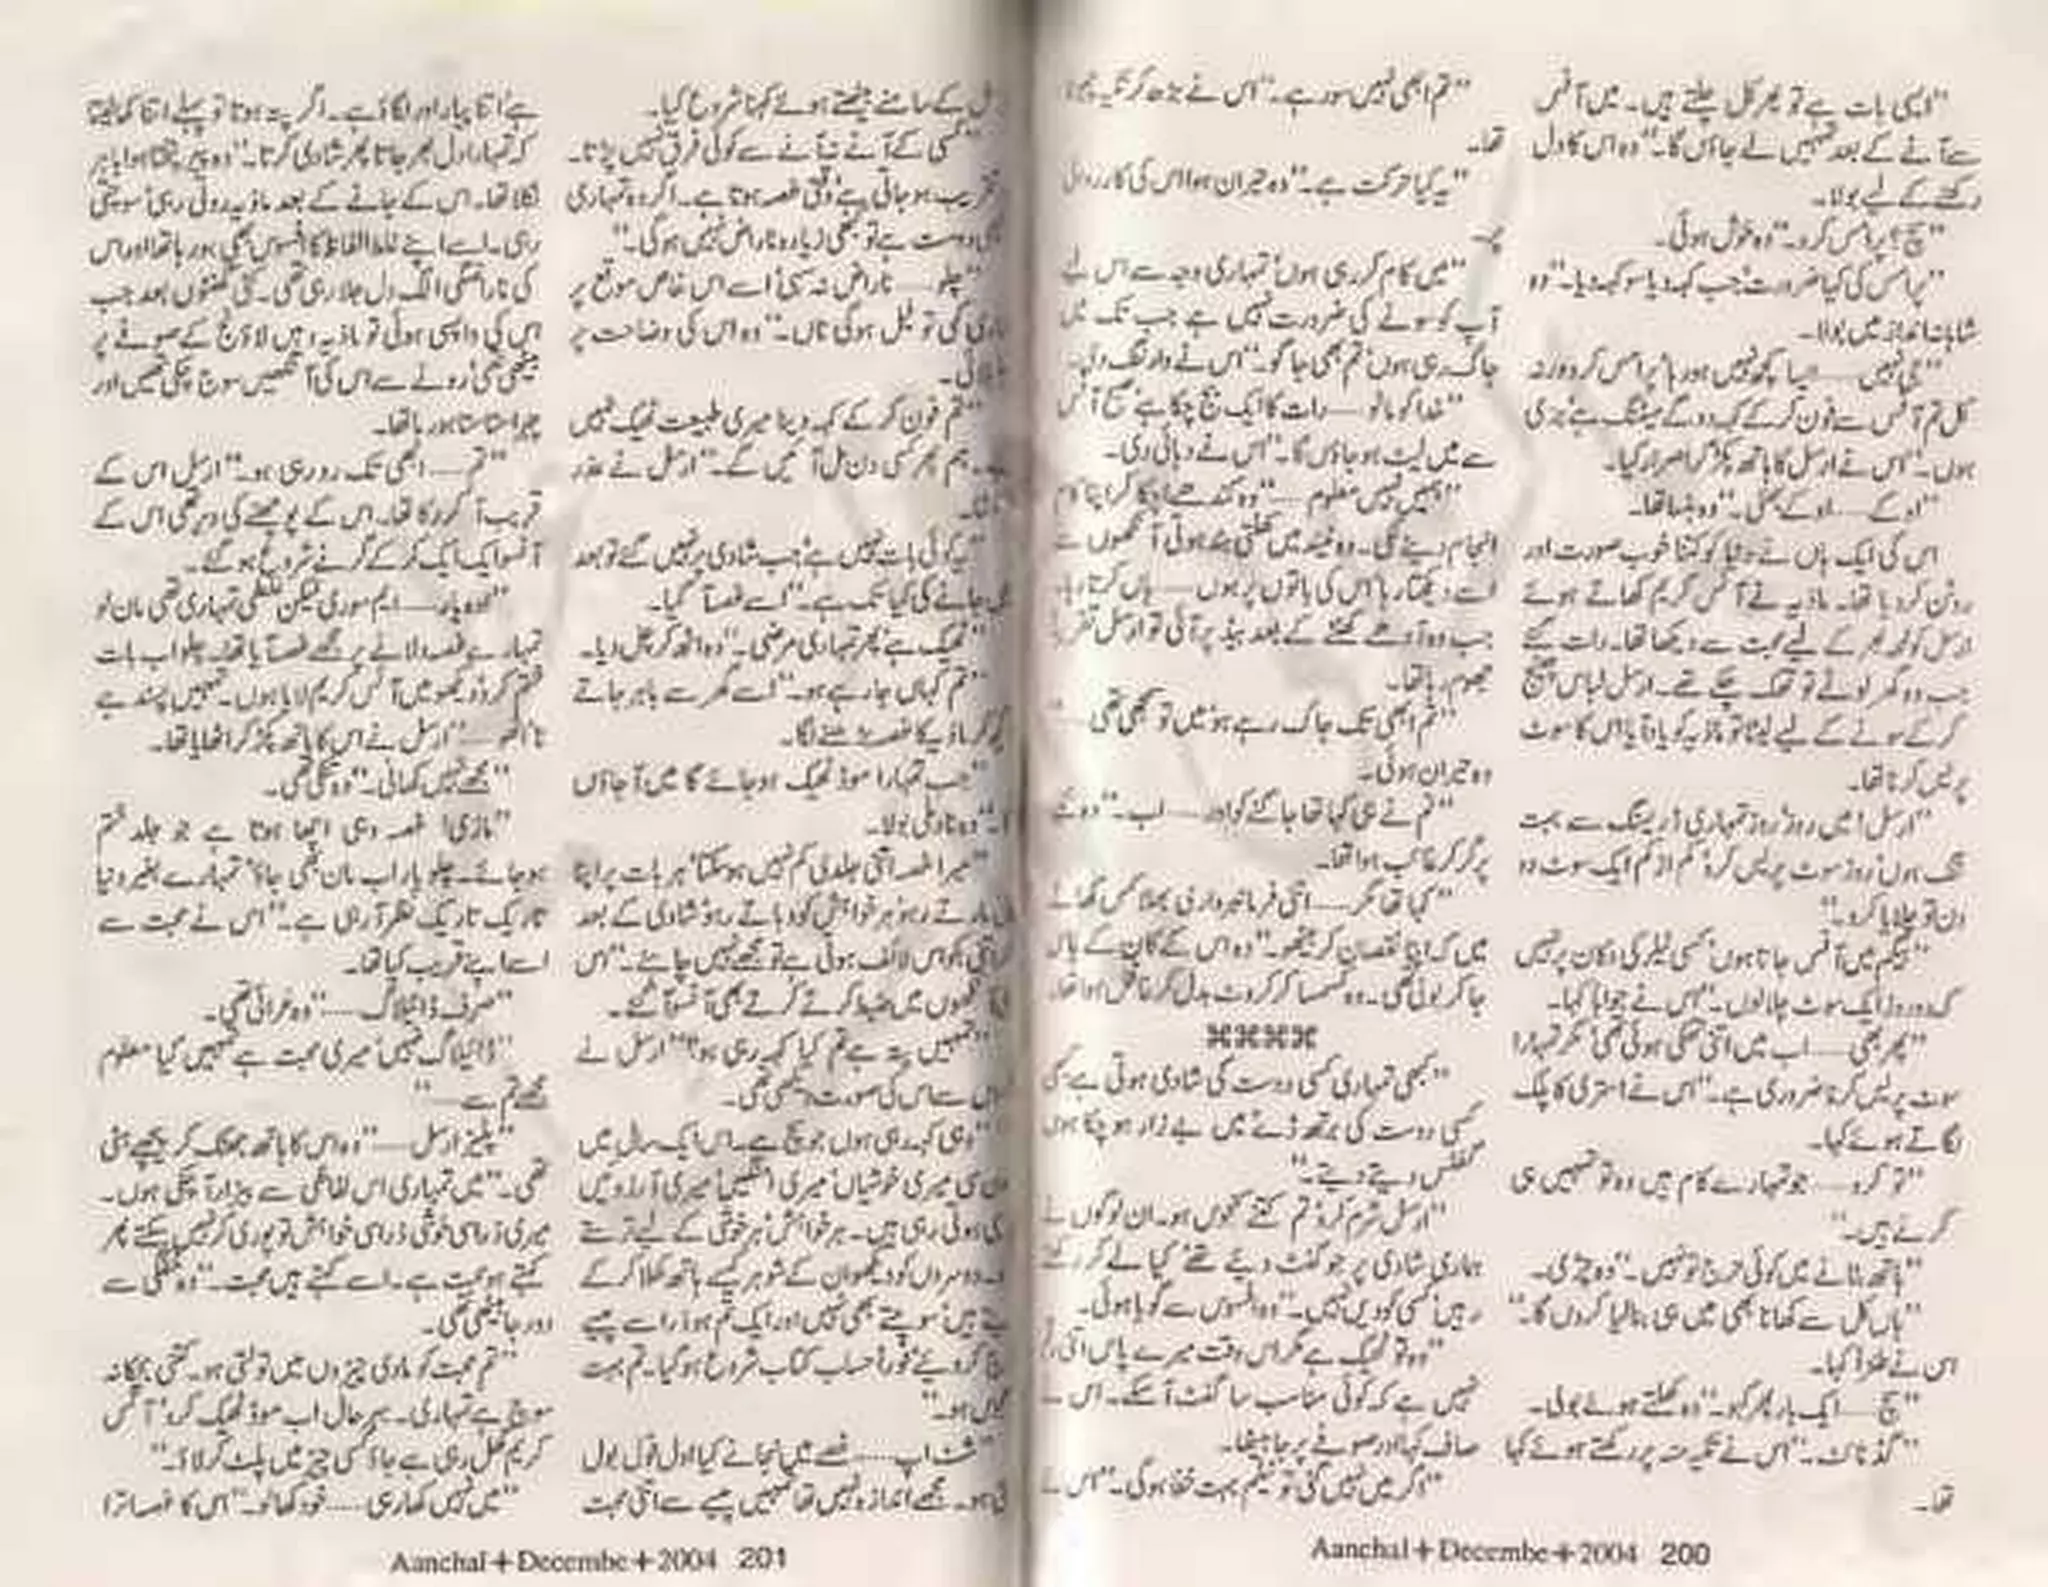 "ایسی بات ہے تو پھر کل چلتے ہیں۔ میں آفس
سے آنے کے بعد تمہیں لے جاؤں گا۔" وہ اس کا دل
رکھنے کے لیے بولا۔
"سچ! پرامس کرو۔" وہ خوش ہوئی۔
"پرامس کی کیا ضرورت، جب کہہ دیا سو کہہ دیا۔" وہ
شاہانہ انداز میں بولا۔
"جی نہیں...... ایسا کچھ نہیں ہو رہا، پرامس کرو ورنہ
کل تم آفس سے فون کر کے کہہ دو گے میٹنگ ہے، بزی
ہوں۔" اس نے ارسل کا ہاتھ پکڑ کر اصرار کیا۔
"اوکے...... اوکے بھئی۔" وہ ہنسا تھا۔
اس کی ایک ہاں نے دنیا کو کتنا خوب صورت اور
روشن کر دیا تھا۔ ماذیہ نے آئس کریم کھاتے ہوئے
ارسل کو لمحہ بھر کے لیے محبت سے دیکھا تھا۔ رات گئے
جب وہ گھر لوٹے تو تھک چکے تھے۔ ارسل لباس چینج
کر کے سونے کے لیے لیٹا تو ماذیہ کو یاد آیا اس کا سوٹ
پریس کرنا تھا۔
"ارسل! میں روز روز تمہاری ڈریسنگ سے بہت
تنگ ہوں، روز سوٹ پریس کرو، کم از کم ایک سوٹ دو
دن تو چلایا کرو۔"
"بیگم میں آفس جاتا ہوں، کسی ٹیلر کی دکان پر نہیں
کہ دو روز ایک سوٹ چلا لوں۔" اس نے جواباً کہا۔
"پھر بھی...... اب میں اتنی تھکی ہوئی تھی، مگر تمہارا
سوٹ پریس کرنا ضروری ہے۔" اس نے استری کا پلگ
لگاتے ہوئے کہا۔
"تو کرو...... جو تمہارے کام ہیں وہ تو تمہیں ہی
کرنے ہیں۔"
"ہاتھ بٹانے میں کوئی حرج تو نہیں۔" وہ چڑی۔
"ہاں کل سے کھانا بھی میں ہی بنا لیا کروں گا۔"
اس نے طنزاً کہا۔
"سچ...... ایک بار پھر کہو۔" وہ کھلتے ہوئے بولی۔
"گڈ نائٹ۔" اس نے تکیہ منہ پر رکھتے ہوئے کہا
تھا۔
"تم ابھی نہیں سو رہے۔" اس نے بڑھ کر تکیہ
تھا۔
"یہ کیا حرکت ہے۔" وہ حیران ہوا اس کی کارروائی
پر۔
"میں کام کر رہی ہوں، تمہاری وجہ سے اس لیے
آپ کو سونے کی ضرورت نہیں ہے جب تک میں
جاگ رہی ہوں، تم بھی جاگو۔" اس نے وارننگ دی۔
"خدا کو مانو...... رات کا ایک بج چکا ہے، صبح آفس
سے میں لیٹ ہو جاؤں گا۔" اس نے دہائی دی۔
"ہمیں نہیں معلوم......" وہ کندھے اچکا کر اپنا کام
انجام دینے لگی۔ وہ نیند میں کھلتی بند ہوتی آنکھوں سے
اسے دیکھتا رہا، اس کی باتوں پر ہوں...... ہاں کرتا رہا۔
جب وہ آدھے گھنٹے کے بعد بیڈ پر آئی تو ارسل تقریباً
جھوم رہا تھا۔
"تم ابھی تک جاگ رہے ہو، میں تو سمجھی تھی......"
وہ حیران ہوئی۔
"تم نے ہی کہا تھا جاگنے کو اور...... اب۔" وہ
پر گر کر غائب ہوا تھا۔
"کہا تھا مگر...... اتنی فرمانبرداری بھلا کس کھاتے
میں کہ اپنا نقصان کر بیٹھو۔" وہ اس کے کان کے پاس
جا کر بولی تھی۔ وہ کسمسا کر کروٹ بدل کر غافل ہوا تھا۔
⌘⌘⌘⌘
"کبھی تمہاری کسی دوست کی شادی ہوتی ہے، کبھی
کسی دوست کی برتھ ڈے میں بے زار ہو چکا ہوں
گفٹس دیتے دیتے۔"
"ارسل شرم کرو، تم کتنے کنجوس ہو۔ ان لوگوں نے
ہماری شادی پر جو گفٹ دیئے تھے، کیا لے کر رکھتے
رہیں، کسی کو دیں نہیں۔" وہ افسوس سے گویا ہوئی۔
"وہ تو ٹھیک ہے مگر اس وقت میرے پاس اتنی رقم
نہیں ہے کہ کوئی مناسب سا گفٹ آ سکے۔ اس نے
صاف کہا اور صوفے پر جا بیٹھا۔
"اگر میں نہیں گئی تو نیلم بہت خفا ہوگی۔" اس نے
Aanchal+Decembe+2004 200
ارسل کے سامنے بیٹھتے ہوئے کہنا شروع کیا۔
"کسی کے آنے نہ آنے سے کوئی فرق نہیں پڑتا۔
تقریب ہو جاتی ہے، وقتی غصہ ہوتا ہے۔ اگر وہ تمہاری
اچھی دوست ہے تو کبھی زیادہ ناراض نہیں ہوگی۔"
"چلو...... ناراض نہ سہی، اسے اس خاص موقع پر
ہماری کمی تو فیل ہوگی ناں۔" وہ اس کی وضاحت پر
"تم فون کر کے کہہ دینا میری طبیعت ٹھیک نہیں
ہے۔ ہم پھر کسی دن مل آئیں گے۔" ارسل نے عذر
"یہ کوئی بات نہیں ہے، جب شادی پر نہیں گئے تو بعد
میں جانے کی کیا تک ہے۔" اسے غصہ آ گیا۔
"ٹھیک ہے، پھر تمہاری مرضی۔" وہ اٹھ کر چل دیا۔
"تم کہاں جا رہے ہو۔" اسے گھر سے باہر جاتے
دیکھ کر ماذیہ کا غصہ بڑھنے لگا۔
"جب تمہارا موڈ ٹھیک ہو جائے گا میں آ جاؤں
گا۔" وہ نارمل بولا۔
"میرا غصہ اتنی جلدی کم نہیں ہو سکتا، ہر بات پر اپنا
دل مارتے رہو، ہر خواہش کو دباتے رہو، شادی کے بعد
اگر اتنی بکواس لائف ہوتی ہے تو مجھے نہیں چاہئے۔" اس
کی آنکھوں میں ضبط کرتے کرتے بھی آنسو آ گئے۔
"تمہیں پتہ ہے تم کیا کہہ رہی ہو؟" ارسل نے
سے اس کی صورت دیکھی تھی۔
"وہی کہہ رہی ہوں جو سچ ہے۔ اس ایک سال میں
میری خوشیاں، میری امنگیں، میری آرزوئیں
ہوتی رہی ہیں۔ ہر خواہش، ہر خوشی کے لیے ترستے
دوسروں کو دیکھو، ان کے شوہر کیسے ہاتھ کھلا کر کے
دیتے ہیں، سوچتے بھی نہیں اور ایک تم ہو، ذرا سے پیسے
کر دیئے، فوراً حساب کتاب شروع ہو گیا۔ تم بہت
کنجوس ہو۔"
"شٹ اپ...... غصے میں نجانے کیا اول فول بول
رہی ہو۔ مجھے اندازہ نہیں تھا تمہیں پیسے سے اتنی محبت
ہے، اتنا پیار اور لگاؤ ہے۔ اگر پتہ ہوتا تو پہلے اتنا کما لیتا
کہ تمہارا دل بھر جاتا پھر شادی کرتا۔" وہ پیر پٹختا ہوا باہر
نکلا تھا۔ اس کے جانے کے بعد ماذیہ روتی رہی، سوچتی
رہی۔ اسے اپنے غلط الفاظ کا افسوس بھی ہو رہا تھا اور اس
کی ناراضگی الگ دل جلا رہی تھی۔ کئی گھنٹوں بعد جب
اس کی واپسی ہوئی تو ماذیہ وہیں لاؤنج کے صوفے پر
بیٹھی تھی، رونے سے اس کی آنکھیں سوج چکی تھیں اور
چہرا ستا ستا ہو رہا تھا۔
"تم...... ابھی تک رو رہی ہو۔" ارسل اس کے
قریب آ کر رکا تھا۔ اس کے پوچھنے کی دیر تھی اس کے
آنسو ایک ایک کر کے گرنے شروع ہو گئے۔
"اوہ یار...... ایم سوری لیکن غلطی تمہاری تھی مان لو
تمہارے غصہ دلانے پر مجھے غصہ آیا تھا۔ چلو اب بات
ختم کرو، دیکھو میں آئس کریم لایا ہوں۔ تمہیں پسند ہے
نا اٹھو......" ارسل نے اس کا ہاتھ پکڑ کر اٹھایا تھا۔
"مجھے نہیں کھانی۔" وہ تنکی تھی۔
"مازی! غصہ وہی اچھا ہوتا ہے جو جلد ختم
ہو جائے۔ چلو یار اب مان بھی جاؤ، تمہارے بغیر دنیا
تاریک تاریک نظر آ رہی ہے۔" اس نے محبت سے
اسے اپنے قریب کیا تھا۔
"صرف ڈائیلاگ......" وہ غرائی تھی۔
"ڈائیلاگ نہیں، میری محبت ہے تمہیں کیا معلوم
مجھے تم سے......"
"پلیز ارسل......" وہ اس کا ہاتھ جھٹک کر پیچھے ہٹی
تھی۔ "میں تمہاری اس لفاظی سے بیزار آ چکی ہوں۔
میری ذرا سی خوشی، ذرا سی خواہش تو پوری کر نہیں سکتے پھر
کہتے ہو محبت ہے۔ اسے کہتے ہیں محبت۔" وہ خفگی سے
دور جا بیٹھی تھی۔
"تم محبت کو مادی چیزوں میں تولتی ہو۔ کتنی بچکانہ
سوچ ہے تمہاری۔ بہرحال اب موڈ ٹھیک کرو، آئس
کریم گھل رہی ہے جاؤ کسی چیز میں پلٹ کر لاؤ۔"
"میں نہیں کھا رہی...... خود کھا لو۔" اس کا غصہ اترا
Aanchal+Decembe+2004 201